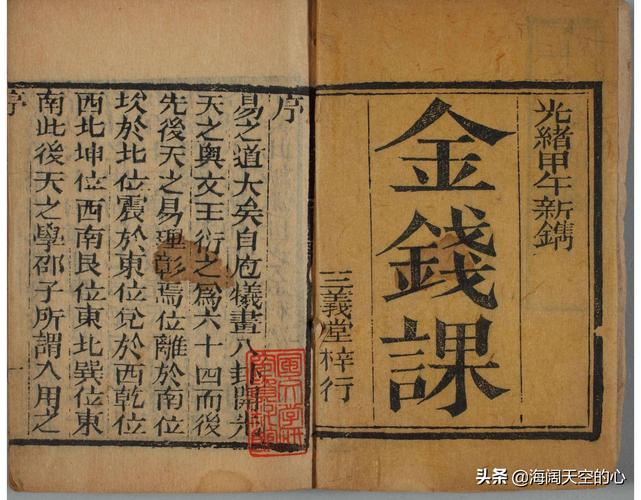 光緒甲午新鐫
金錢課
三義堂梓行
序
易之道大矣自庖犧畫八卦開先
天之奧文王衍之爲六十四而後
先後天之易理彰焉位離於南位
坎於北位震於東位兌於西乾位
西北坤位西南艮位東北巽位東
南此後天之學邵子所謂入用之
序
一
头条 @海阔天空的心